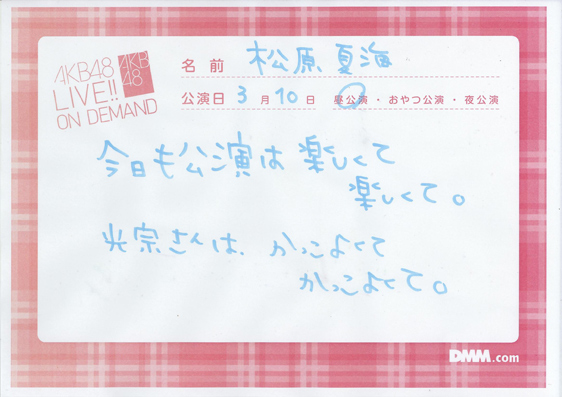 AKB48
LIVE!!
ON DEMAND
AKB
48
名前 松原夏海
公演日 3月10日 昼公演・おやつ公演・夜公演
今日も公演は楽しくて
楽しくて。
光宗さんは、かっこよくて
かっこよくて。
DMM.com